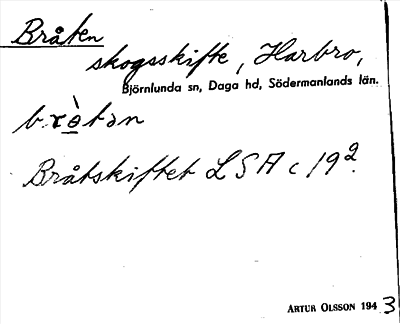 Bråten
skogsskifte, Harbro,
Björnlunda sn, Daga hd, Södermanlands län.
Bråtskiftet LSA c 19².
ARTUR OLSSON 1943